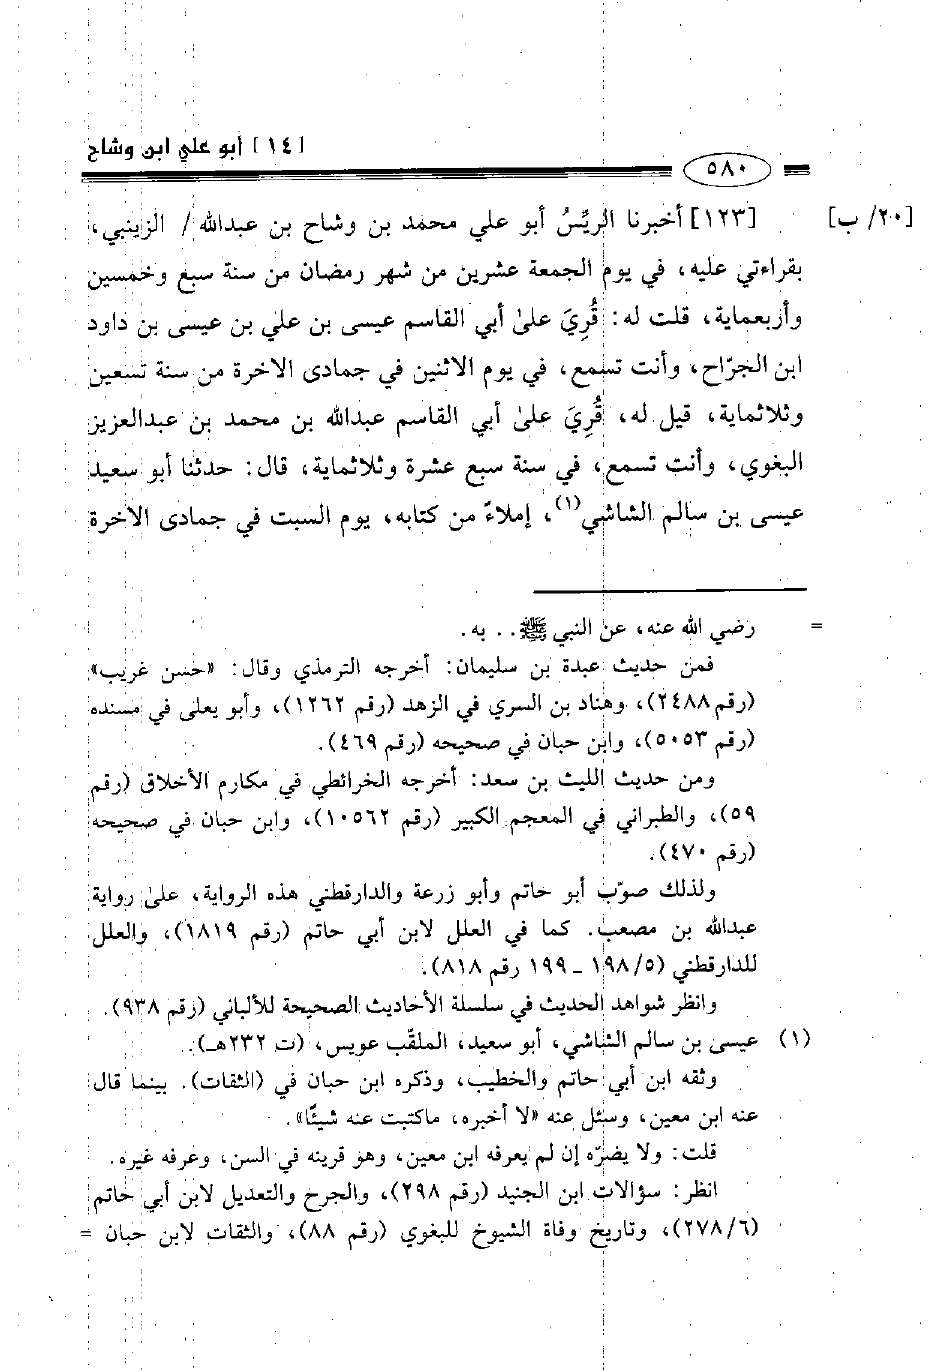 [١٤] أبو علي ابن وشاح
٥٨٠
[٢٠/ ب] [١٢٣] أخبرنا الريِّسُ أبو علي محمد بن وشاح بن عبدالله / الزينبي،
بقراءتي عليه، في يوم الجمعة عشرين من شهر رمضان من سنة سبع وخمسين
وأربعماية، قلت له: قُرِيَ علىٰ أبي القاسم عيسى بن علي بن عيسى بن داود
ابن الجرّاح، وأنت تسمع، في يوم الاثنين في جمادى الاخرة من سنة تسعين
وثلاثماية، قيل له، قُرِيَ علىٰ أبي القاسم عبدالله بن محمد بن عبدالعزيز
البغوي، وأنت تسمع، في سنة سبع عشرة وثلاثماية، قال: حدثنا أبو سعيد
عيسى بن سالم الشاشي(١)، إملاءً من كتابه، يوم السبت في جمادى الاخرة
= رضي الله عنه، عن النبي ﷺ.. به.
فمن حديث عبدة بن سليمان: أخرجه الترمذي وقال: «حسن غريب»
(رقم ٢٤٨٨)، وهناد بن السري في الزهد (رقم ١٢٦٢)، وأبو يعلى في مسنده
(رقم ٥٠٥٣)، وابن حبان في صحيحه (رقم ٤٦٩).
ومن حديث الليث بن سعد: أخرجه الخرائطي في مكارم الأخلاق (رقم
٥٩)، والطبراني في المعجم الكبير (رقم ١٠٥٦٢)، وابن حبان في صحيحه
(رقم ٤٧٠).
ولذلك صوّب أبو حاتم وأبو زرعة والدارقطني هذه الرواية، علىٰ رواية
عبدالله بن مصعب. كما في العلل لابن أبي حاتم (رقم ١٨١٩)، والعلل
للدارقطني (٥/ ١٩٨ ـ ١٩٩ رقم ٨١٨).
وانظر شواهد الحديث في سلسلة الأحاديث الصحيحة للألباني (رقم ٩٣٨).
(١) عيسى بن سالم الشاشي، أبو سعيد، الملقّب عويس، (ت ٢٣٢هـ).
وثقه ابن أبي حاتم والخطيب، وذكره ابن حبان في (الثقات). بينما قال
عنه ابن معين، وسئل عنه «لا أخبره، ماكتبت عنه شيئًا».
قلت: ولا يضرّه إن لم يعرفه ابن معين، وهو قرينه في السن، وعرفه غيره.
انظر: سؤالات ابن الجنيد (رقم ٢٩٨)، والجرح والتعديل لابن أبي حاتم
(٦/ ٢٧٨)، وتاريخ وفاة الشيوخ للبغوي (رقم ٨٨)، والثقات لابن حبان =